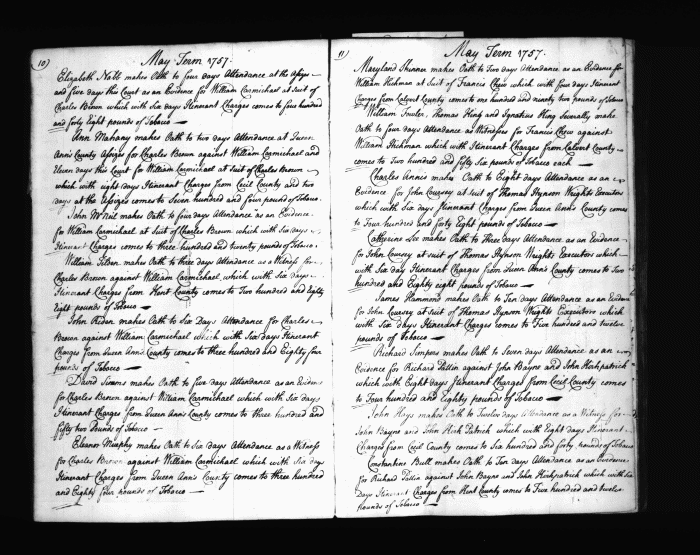 10)
May Term 1757.
Elizabeth Nobb makes Oath to four days Attendance at the Assizes
and five days this Court as an Evidence for William Carmichael at suit of
Charles Brown which with Six days Itinerant Charges comes to four hundred
and forty Eight pounds of Tobacco
Ann Mahany makes Oath to two days Attendance at Queen
Anns County Assizes for Charles Brown against William Carmichael and
Eleven days this Court for William Carmichael at suit of Charles Brown
which with eight days Itinerant Charges from Cecil County and two
days at the Assizes comes to Seven hundred and four pounds of Tobacco.
John McNeil makes Oath to four days Attendance as an Evidence
for William Carmichael at suit of Charles Brown which with Six days
Itinerant Charges comes to three hundred and twenty pounds of Tobacco.
William makes Oath to three days Attendance as a Witness for
Charles Brown against William Carmichael, which with Six days
Itinerant Charges from Kent County comes to Two hundred and Eighty
Eight pounds of Tobacco
John Reden makes Oath to Six Days Attendance for Charles
Brown against William Carmichael which with Six days Itinerant
Charges from Queen Anns County comes to three hundred and Eighty four
pounds of Tobacco
David Simms makes Oath to five days Attendance as an Evidence
for Charles Brown against William Carmichael which with Six days
Itinerant Charges from Queen Anns County comes to three hundred and
fifty two Pounds of Tobacco
Eleanor Murphy makes Oath to Six days Attendance as a Witness
for Charles Brown against William Carmichael which with Six day
Itinerant Charges from Queen Anns County comes to three hundred
and Eighty four pounds of Tobacco
11)
May Term 1757.
Maryland Skinner makes Oath to Two days Attendance, as an Evidence for
William Hickman at Suit of Francis Chew which with four days Itinerant
Charges from Calvert County comes to one hundred and ninety two pounds of Tobacco
William Fowler, Thomas King and Ignatius King severally make
Oath to four days Attendance as Witnesses for Francis Chew against
William Hickman which with Itinerant Charges from Calvert County
comes to two hundred and fifty six pounds of Tobacco each
Charles Annis makes Oath to Eight days Attendance as an
Evidence for John Coursey at suit of Thomas Hynson Wrights Executors
which with six days Itinerant Charges from Queen Anns County comes
to Four hundred and forty Eight pounds of Tobacco
Catherine Lee makes Oath to three days Attendance as an Evidence
for John Coursey at suit of Thomas Hynson Wrights Executors which
with Six day Itinerant Charges from Queen Anns County comes to Two
hundred and Eighty eight pounds of Tobacco
James Hammond makes Oath to Ten days Attendance as an Evidence
for John Coursey at suit of Thomas Hynson Wrights Executors which
with Six days Itinerant Charges comes to Five hundred and twelve
pounds of Tobacco
Richard Simpers makes Oath to Seven days Attendance as an
Evidence for Richard Pallin against John Bayne and John Kirkpatrick
which with Eight days Itinerant Charges from Cecil County comes
to Four hundred and Eighty pounds of Tobacco
John Hays makes Oath to Twelve days Attendance as a Witness for
John Bayne and John Kirk Patrick which with Eight days Itinerant
Charges from Cecil County comes to Six hundred and forty pounds of Tobacco
Constantine Bull makes Oath to Ten days Attendance as an Evidence
for Richard Pallin against John Bayne and John Kirkpatrick which with Six
Days Itinerant Charges from Kent County comes to Five hundred and twelve
pounds of Tobacco